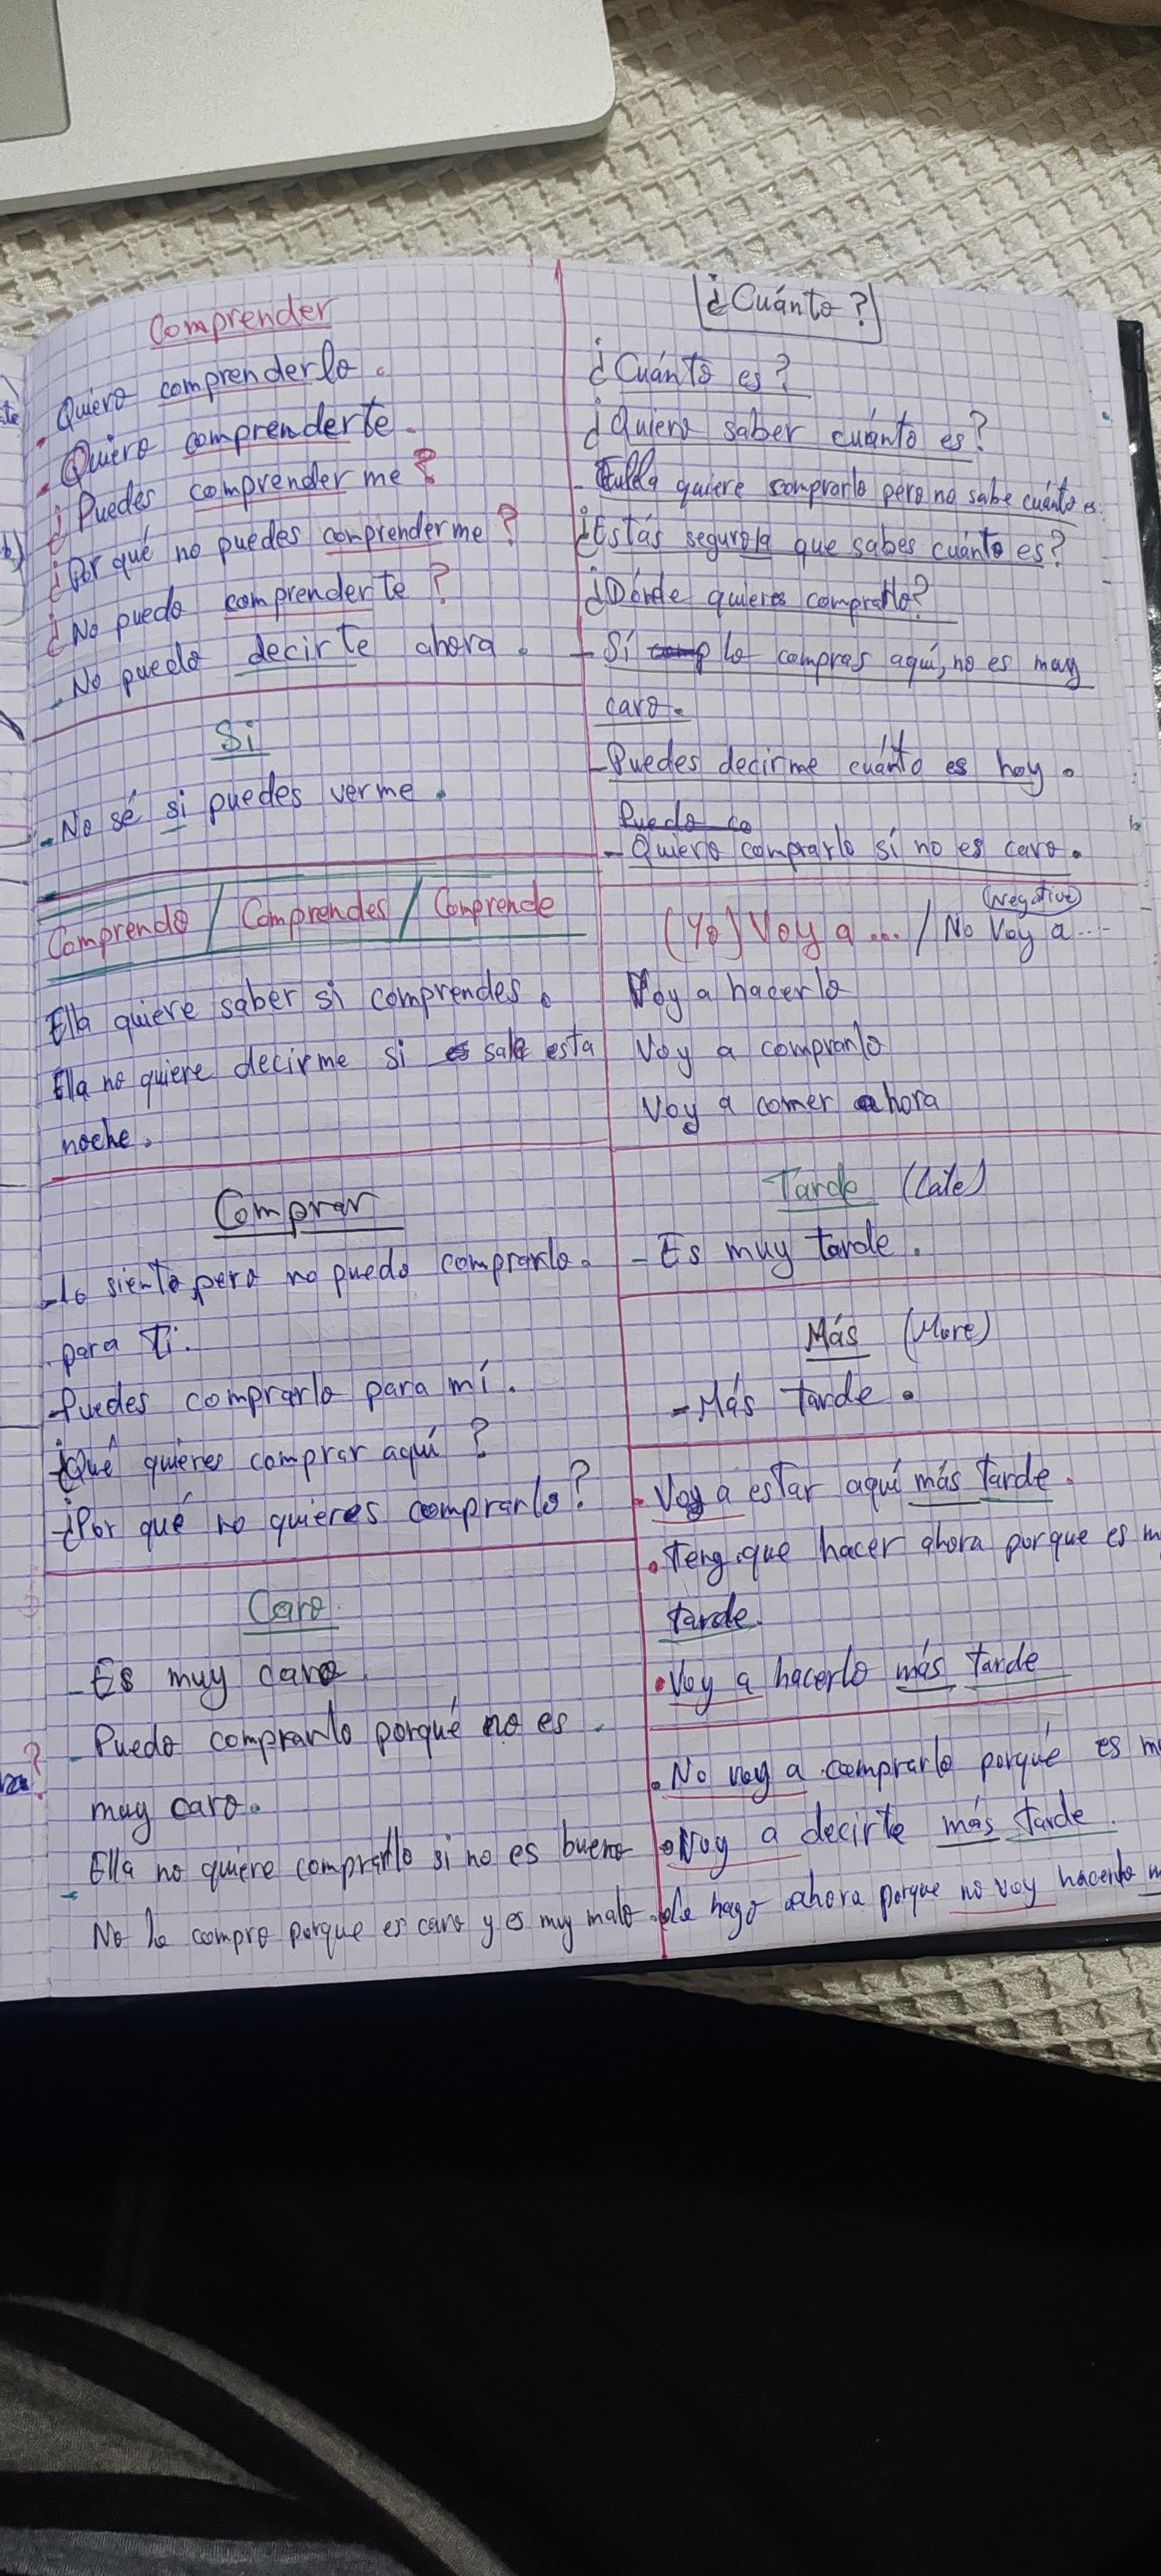 Comprender
Quiero comprenderlo.
Quiero comprenderte.
¿Puedes comprender me?
¿Por qué no puedes comprenderme?
¿No puedo comprenderte?
No puedo decirte ahora.
Si
- No sé si puedes verme.
Comprendo / Comprendes / Comprende
Ella quiere saber si comprendes.
Ella no quiere decirme si sale esta
noche.
Comprar
- Lo siento, pero no puedo comprarlo.
para Ti.
- Puedes comprarlo para mí.
- ¿Qué quieres comprar aquí?
- ¿Por qué no quieres comprarlo?
Caro
- Es muy caro
- Puedo comprarlo porqué no es
muy caro.
- Ella no quiere comprarlo si no es bueno
No lo compro porque es caro y es muy malo.
¿Cuánto?
¿Cuánto es?
¿Quiero saber cuánto es?
- Ella quiere comprarlo pero no sabe cuánto es.
¿Estás seguro/a que sabes cuánto es?
¿Dónde quieres comprarlo?
- Sí lo compras aquí, no es muy
caro.
- Puedes decirme cuánto es hoy.
Puedo co
- Quiero comprarlo sí no es caro.
(Negative)
(Yo) Voy a ... / No Voy a ...
Voy a hacerlo
Voy a comprarlo
Voy a comer ahora
Tarde (Late)
- Es muy tarde.
Más (More)
- Más tarde.
Voy a estar aquí más tarde.
Teng que hacer ahora porque es m
tarde.
Voy a hacerlo más tarde
No voy a comprarlo porqué es m
Voy a decirte más tarde.
Lo hago ahora porque no voy hacerlo m